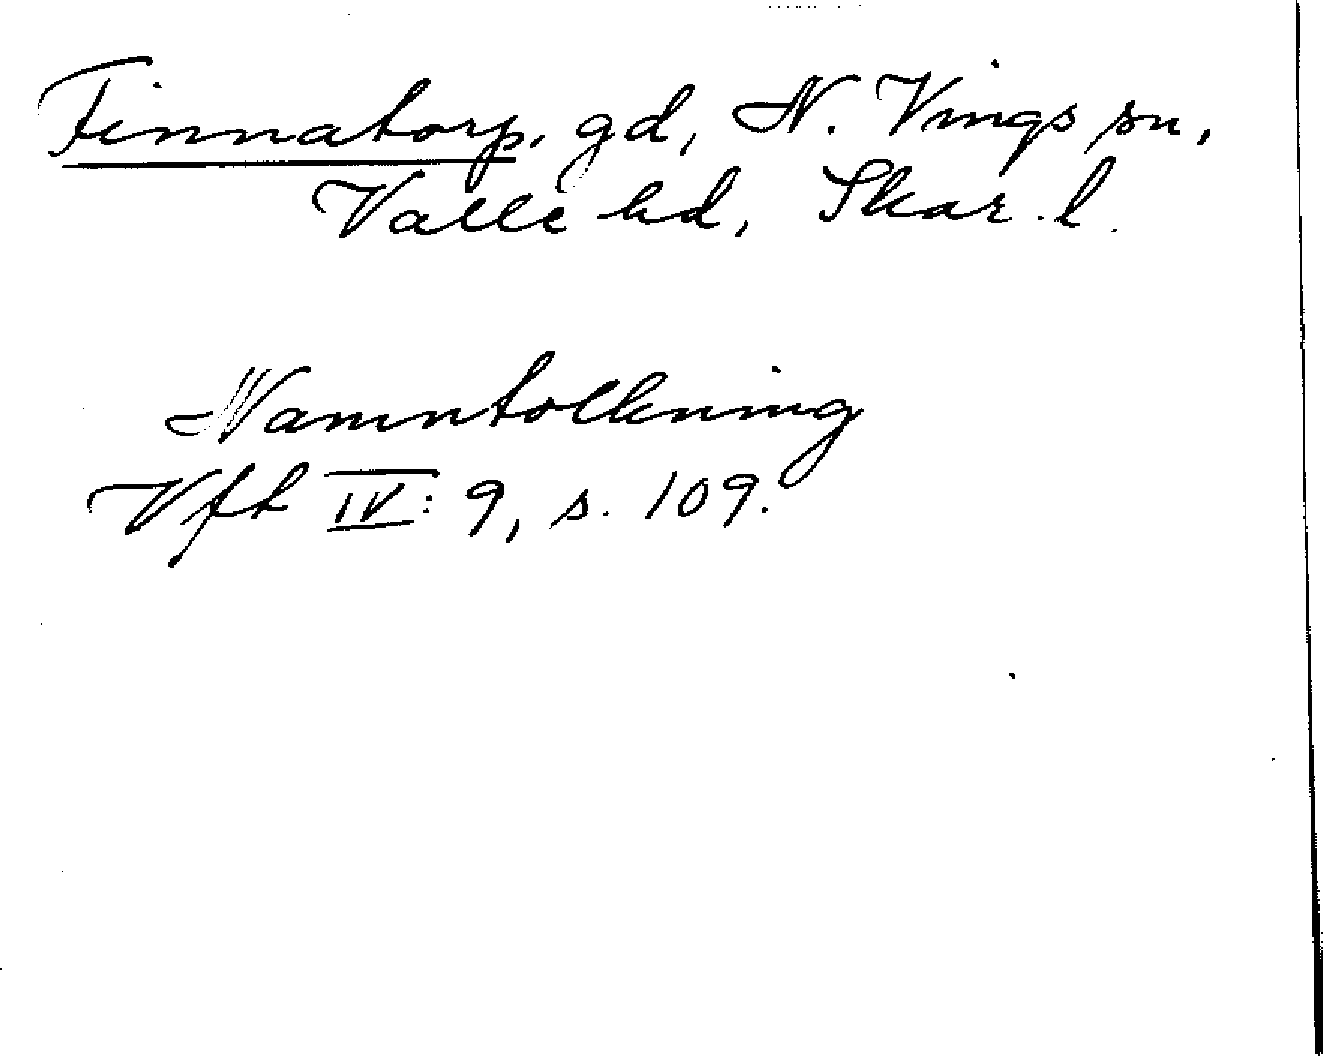 Finnatorp, gd, N. Vings sn,
Valle hd, Skar. l.
Namntolkning
Vft IV: 9, s. 109.